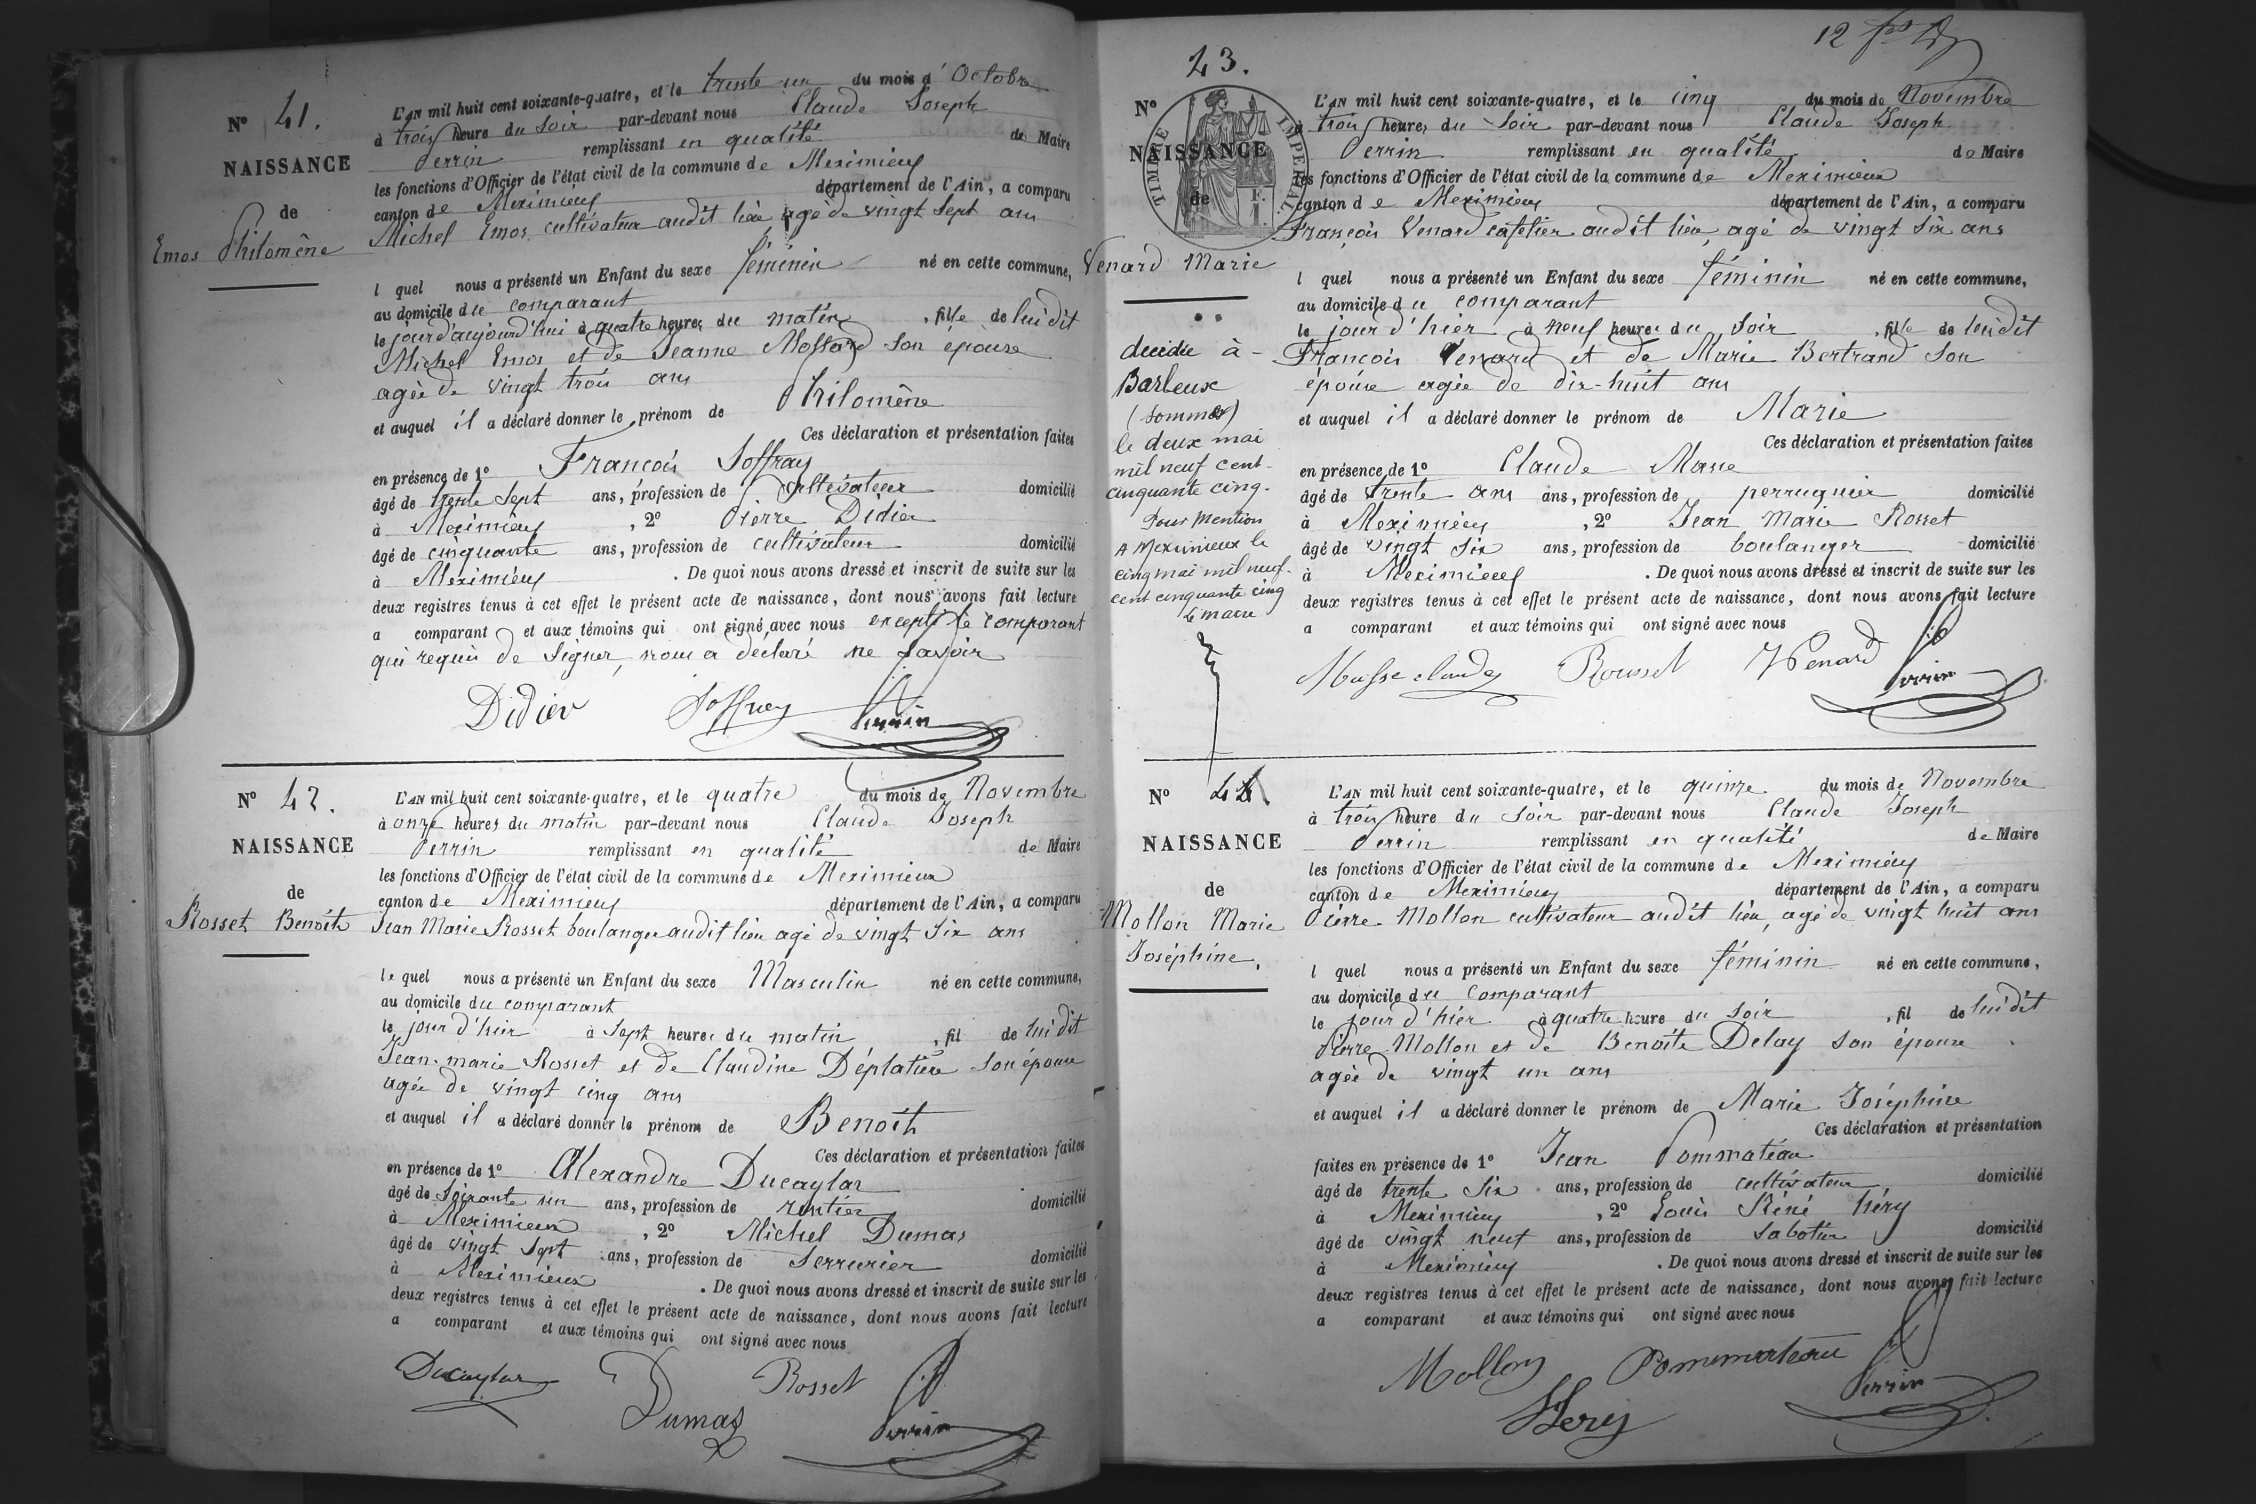 N° 41.
NAISSANCE
de
Emos Philomène
L'AN mil huit cent soixante-quatre, et le trente un du mois d'Octobre
à trois heure du soir par-devant nous Claude Joseph
Perrin remplissant en qualité de Maire
les fonctions d'Officier de l'état civil de la commune de Meximieux
canton de Meximieux département de l'Ain, a comparu
Michel Emos cultivateur audit lieu agé de vingt sept ans
l quel nous a présenté un Enfant du sexe féminin né en cette commune,
au domicile du comparant
le jour d'aujourd'hui à quatre heures du matin, fille de lui dit
Michel Emos et de Jeanne Mossard son épouse
agée de vingt trois ans
et auquel il a déclaré donner le prénom de Philomène
Ces déclaration et présentation faites
en présence de 1° François Joffray
âgé de trente sept ans, profession de cultivateur domicilié
à Meximieux, 2° Pierre Didier
âgé de cinquante ans, profession de cultivateur domicilié
à Meximieux. De quoi nous avons dressé et inscrit de suite sur les
deux registres tenus à cet effet le présent acte de naissance, dont nous avons fait lecture
a comparant et aux témoins qui ont signé avec nous excepté le comparant
qui requis de signer, nous a déclaré ne savoir
Didier Joffrey Perrin
N° 42.
NAISSANCE
de
Rosset Benoît
L'AN mil huit cent soixante-quatre, et le quatre du mois de Novembre
à onze heures du matin par-devant nous Claude Joseph
Perrin remplissant en qualité de Maire
les fonctions d'Officier de l'état civil de la commune de Meximieux
canton de Meximieux département de l'Ain, a comparu
Jean Marie Rosset boulanger audit lieu agé de vingt six ans
le quel nous a présenté un Enfant du sexe Masculin né en cette commune,
au domicile du comparant
le jour d'hier à sept heures du matin, fil de lui dit
Jean-marie Rosset et de Claudine Déplatière son épouse
agée de vingt cinq ans
et auquel il a déclaré donner le prénom de Benoît
Ces déclaration et présentation faites
en présence de 1° Alexandre Ducaylar
âgé de soixante un ans, profession de rentier domicilié
à Meximieux, 2° Michel Dumas
âgé de vingt sept ans, profession de serrurier domicilié
à Meximieux. De quoi nous avons dressé et inscrit de suite sur les
deux registres tenus à cet effet le présent acte de naissance, dont nous avons fait lecture
a comparant et aux témoins qui ont signé avec nous
Ducaylar Dumas Rosset Perrin
12
N° 43.
TIMBRE IMPERIAL
NAISSANCE
de
Venard Marie
décédée à
Barleux
(Somme)
le deux mai
mil neuf cent
cinquante cinq.
Pour Mention
A Meximieux le
cinq mai mil neuf
cent cinquante cinq
le maire
L'AN mil huit cent soixante-quatre, et le cinq du mois de Novembre
à trois heures du soir par-devant nous Claude Joseph
Perrin remplissant en qualité de Maire
les fonctions d'Officier de l'état civil de la commune de Meximieux
canton de Meximieux département de l'Ain, a comparu
François Venard cafetier audit lieu, agé de vingt six ans
l quel nous a présenté un Enfant du sexe féminin né en cette commune,
au domicile du comparant
le jour d'hier à neuf heures du soir, fille de lui dit
François Venard et de Marie Bertrand son
épouse agée de dix-huit ans
et auquel il a déclaré donner le prénom de Marie
Ces déclaration et présentation faites
en présence de 1° Claude Masse
âgé de trente ans ans, profession de perruquier domicilié
à Meximieux, 2° Jean Marie Rosset
âgé de vingt six ans, profession de boulanger domicilié
à Meximieux. De quoi nous avons dressé et inscrit de suite sur les
deux registres tenus à cet effet le présent acte de naissance, dont nous avons fait lecture
a comparant et aux témoins qui ont signé avec nous
Masse claude Rousset Venard Perrin
N° 44
NAISSANCE
de
Mollon Marie
Joséphine.
L'AN mil huit cent soixante-quatre, et le quinze du mois de Novembre
à trois heure du soir par-devant nous Claude Joseph
Perrin remplissant en qualité de Maire
les fonctions d'Officier de l'état civil de la commune de Meximieux
canton de Meximieux département de l'Ain, a comparu
Pierre Mollon cultivateur audit lieu, agé de vingt huit ans
l quel nous a présenté un Enfant du sexe féminin né en cette commune,
au domicile du comparant
le jour d'hier à quatre heure du soir, fil de lui dit
Pierre Mollon et de Benoîte Delay son épouse
agée de vingt un ans
et auquel il a déclaré donner le prénom de Marie Joséphine
Ces déclaration et présentation
faites en présence de 1° Jean Pommateau
âgé de trente six ans, profession de cultivateur domicilié
à Meximieux, 2° Louis Réné héry
âgé de vingt neuf ans, profession de sabotier domicilié
à Meximieux. De quoi nous avons dressé et inscrit de suite sur les
deux registres tenus à cet effet le présent acte de naissance, dont nous avons fait lecture
a comparant et aux témoins qui ont signé avec nous
Mollon Pommateau Hery Perrin